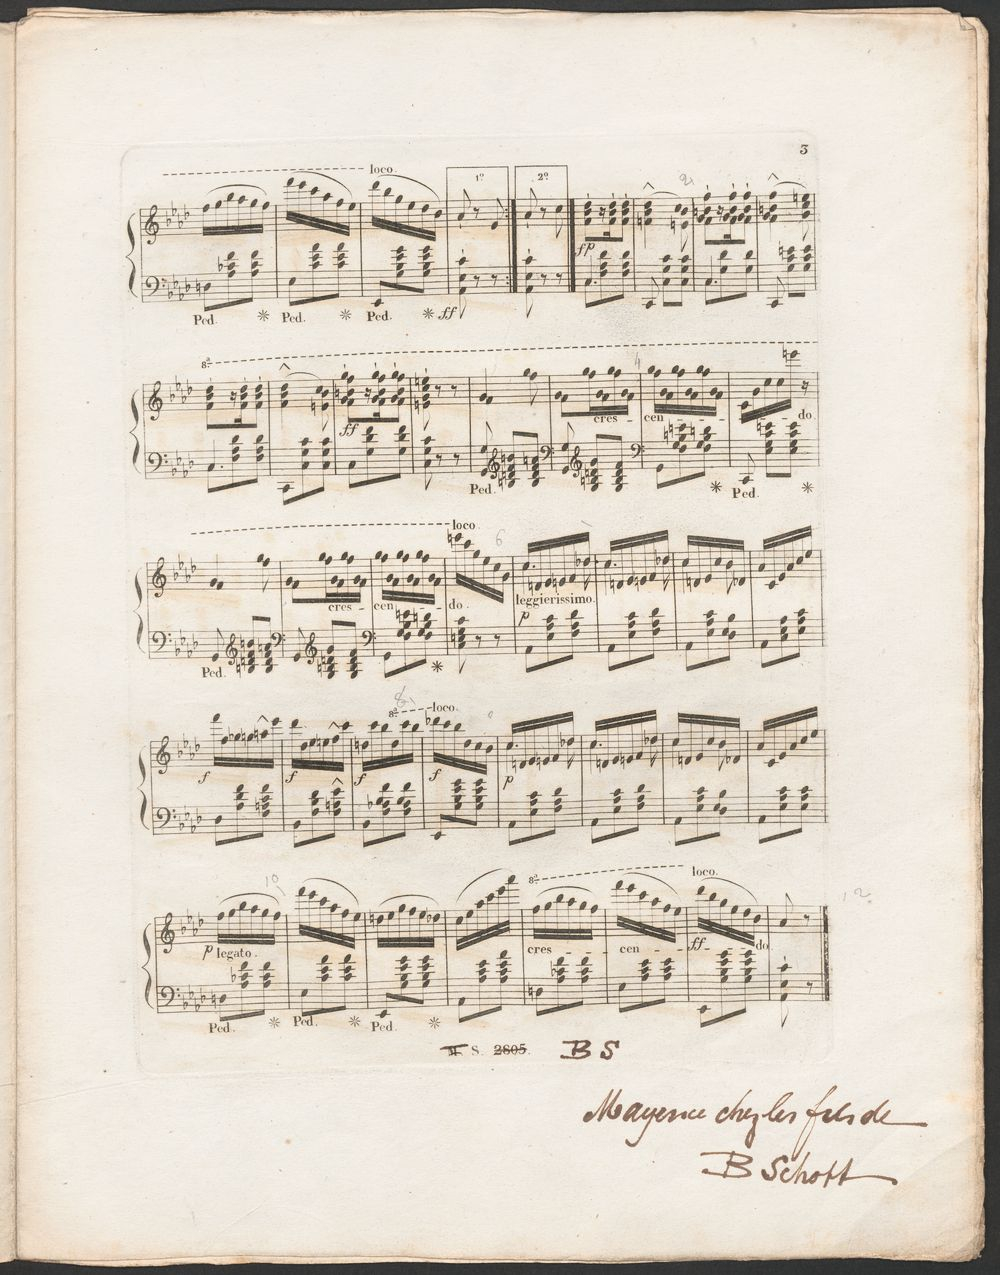 3
loco.
1º 2º
2
fp
Ped. Ped. Ped. ff
8ª
4
ff cres - cen - - - do
Ped. Ped.
loco.
6
cres - cen - - do. leggierissimo.
p
Ped.
8 8ª loco.
f f f f p
10 8ª loco. 12
p legato. cres - - - cen - - - ff - - do
Ped. Ped. Ped.
S. 2805. BS
Mayence chez les fils de
B Schott